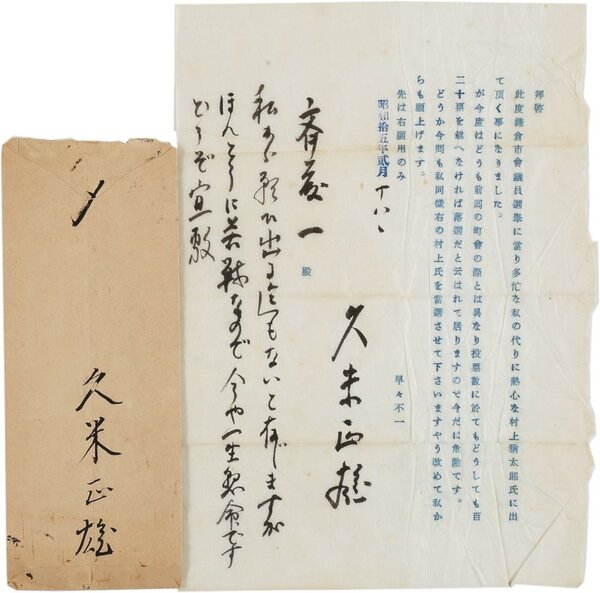 拝啓
此度鎌倉市會議員選擧に當り多忙な私の代りに熱心な村上猶太郎氏に出
て頂く事になりました。
が今度はどうも前囘の町會の際とは異なり投票數に於てもどうしても百
二十票を越へなければ落選だと云はれて居りますので今だに危險です。
どうか今囘も私同樣右の村上氏を當選させて下さいますやう改めて私か
らも願上げます。
先は右願用のみ
早々不一
昭和拾五年貳月 十八日
久米正雄
斉藤一 殿
私から願ひ出る迄もないと存じますが
ほんとうに苦戦なので今や一生懸命です
どうぞ宜敷
〆
久米正雄